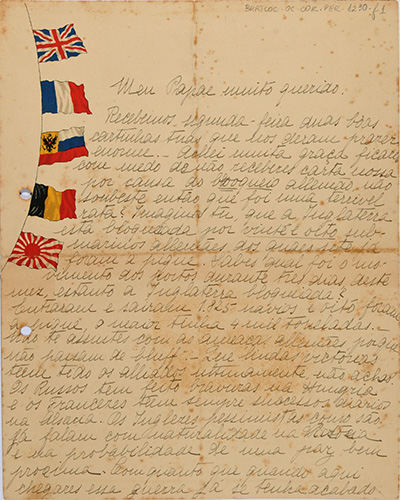 BR RJCOC OC.COR.PER.1290.f1
Meu Papae muito querido:
Recebemos segunda-feira duas boas
cartinhas tuas que nos deram prazer
enorme. Achei muita graça ficares
com medo de não receberes carta nossa
por causa do bloqueio allemão, não
soubeste então que foi uma terrivel
rata? Imagina tu que a Inglaterra
está bloqueada por vinte e oito sub-
marinos allemães dos quaes sete já
foram a pique. Sabes qual foi o mo-
vimento dos portos durante tres dias deste
mez, estando a Inglaterra bloqueada?
Entraram e sairam 1925 navios e oito foram
a pique, o maior tinha 4 mil toneladas.
Não te assustes com as ameaças allemães porque
não passam de bluff. Que lindas victorias
teem tido os alliados ultimamente não achas?
Os Russos tem feito bravuras na Hungria
e os Francezes tem sempre successos diarios
na Alsacia. Os Inglezes pessimistas como são
já falam com naturalidade na
e sea probabilidade de uma paz bem
proxima. Comquanto que quando aqui
chegares essa guerra já se tenha acabado